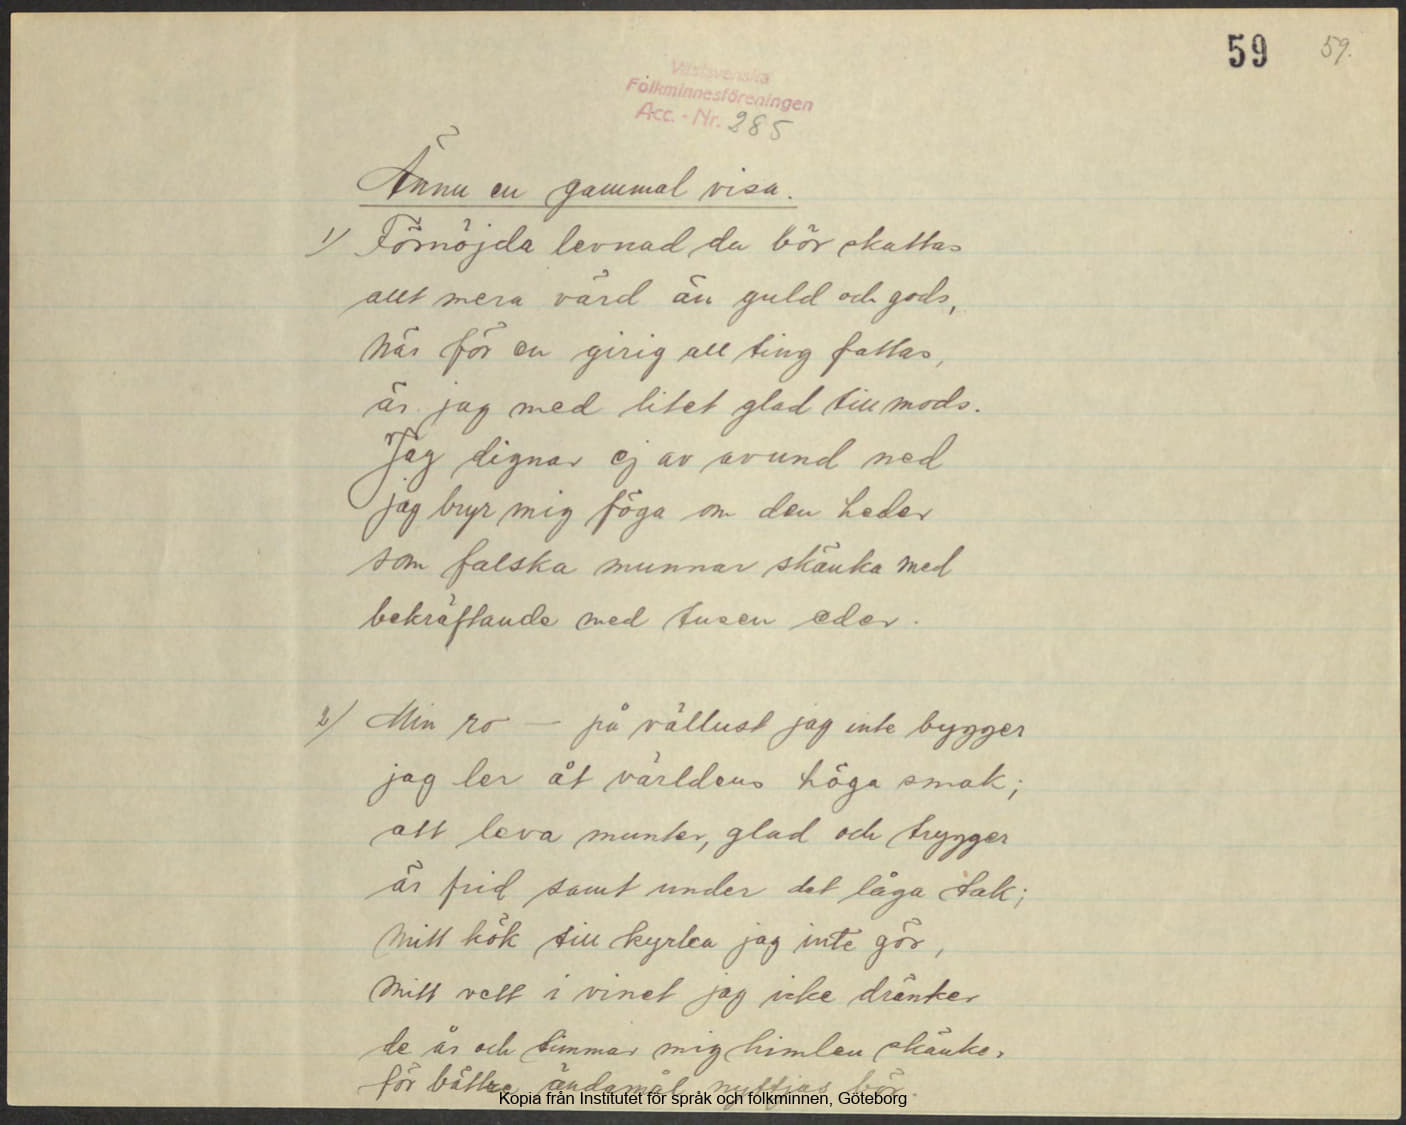 59 59.
Västsvenska
Folkminnesföreningen
Acc. - Nr. 285
Ännu en gammal visa.
1/ Förnöjda levnad du bör skattas
allt mera värd än guld och gods,
När för en girig all ting fattas,
är jag med litet glad till mods.
Jag dignar ej av avund ned
jag bryr mig föga om den heder
som falska munnar skänka med
bekräftande med tusen eder.
2/ Min ro — på vällust jag inte bygger
jag ler åt världens höga smak;
att leva munter, glad och trygger
är frid samt under det låga tak;
Mitt kök till kyrka jag inte gör,
Mitt vett i vinet jag icke dränker
de år och timmar mig himlen skänker
för bättre ändamål nyttjas bör.
Kopia från Institutet för språk och folkminnen, Göteborg